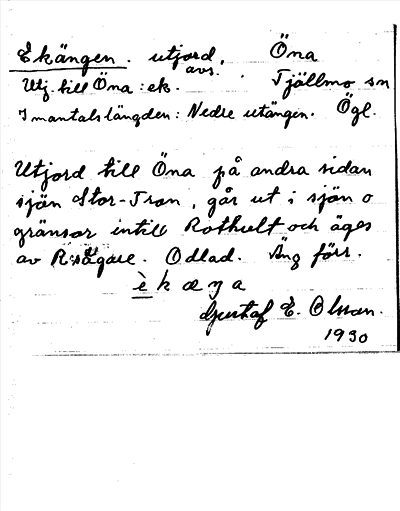 Ekängen. utjord, avs. Öna
Utj. till Öna: ek. Tjällmo sn
I mantalslängden: Nedre utängen. Ögl.
Utjord till Öna på andra sidan
sjön Stor-Tron, går ut i sjön o
gränsar intill Rothult och äges
av R:s ägare. Odlad. Äng förr.
è k æ ŋ a
Gustaf E. Olsson.
1930